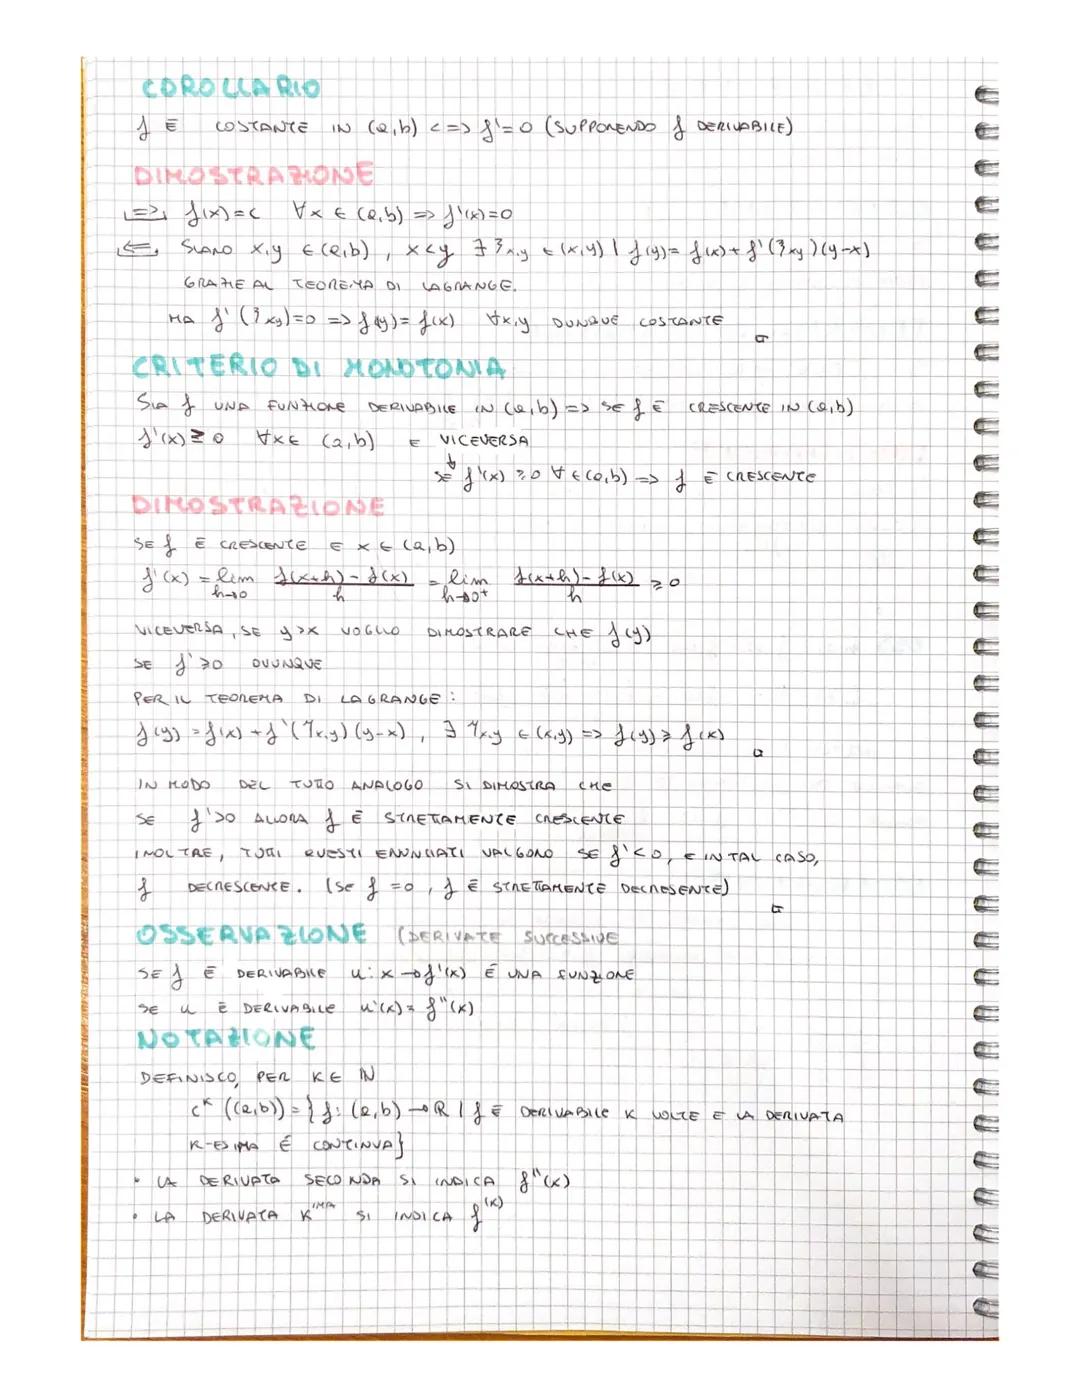 COROLLARIO
f È COSTANTE IN (a,b) <=> f'=0 (SUPPONENDO f DERIVABILE)
DIMOSTRAZIONE
=> f(x)=c ∀x ∈ (a,b) => f'(x)=0
<= SIANO x,y ∈(a,b), x<y ∃ ξx,y ∈(x,y) | f(y)= f(x)+f'(ξxy)(y-x)
GRAZIE AL TEOREMA DI LAGRANGE.
MA f'(ξxy)=0 => f(y)= f(x) ∀x,y DUNQUE COSTANTE □
CRITERIO DI MONOTONIA
SIA f UNA FUNZIONE DERIVABILE IN (a,b) => SE f È CRESCENTE IN (a,b)
f'(x)≥0 ∀x∈ (a,b) E VICEVERSA
↓
SE f'(x) ≥0 ∀ ∈(a,b) => f È CRESCENTE
DIMOSTRAZIONE
SE f È CRESCENTE E x ∈ (a,b)
f'(x) = lim h→0 f(x+h)-f(x) / h = lim h→0+ f(x+h)-f(x) / h ≥0
VICEVERSA, SE y>x VOGLIO DIMOSTRARE CHE f(y)
SE f'≥0 OVUNQUE
PER IL TEOREMA DI LAGRANGE:
f(y) = f(x) + f'(ηx,y)(y-x), ∃ ηx,y ∈(x,y) => f(y)≥ f(x) □
IN MODO DEL TUTTO ANALOGO SI DIMOSTRA CHE
SE f'>0 ALLORA f È STRETTAMENTE CRESCENTE
INOLTRE, TUTTI QUESTI ENUNCIATI VALGONO SE f'<0, E IN TAL CASO,
f DECRESCENTE. (SE f =0, f È STRETTAMENTE DECRESENTE) □
OSSERVAZIONE (DERIVATE SUCCESSIVE
SE f È DERIVABILE u: x→f'(x) È UNA FUNZIONE
SE u È DERIVABILE u'(x)= f"(x)
NOTAZIONE
DEFINISCO, PER K∈ ℕ
Cᴷ ((a,b)) = { f: (a,b) → R | f È DERIVABILE K VOLTE E LA DERIVATA
K-ESIMA È CONTINUA}
• LA DERIVATA SECONDA SI INDICA f"(x)
• LA DERIVATA Kᴵᴹᴬ SI INDICA f⁽ᴷ⁾